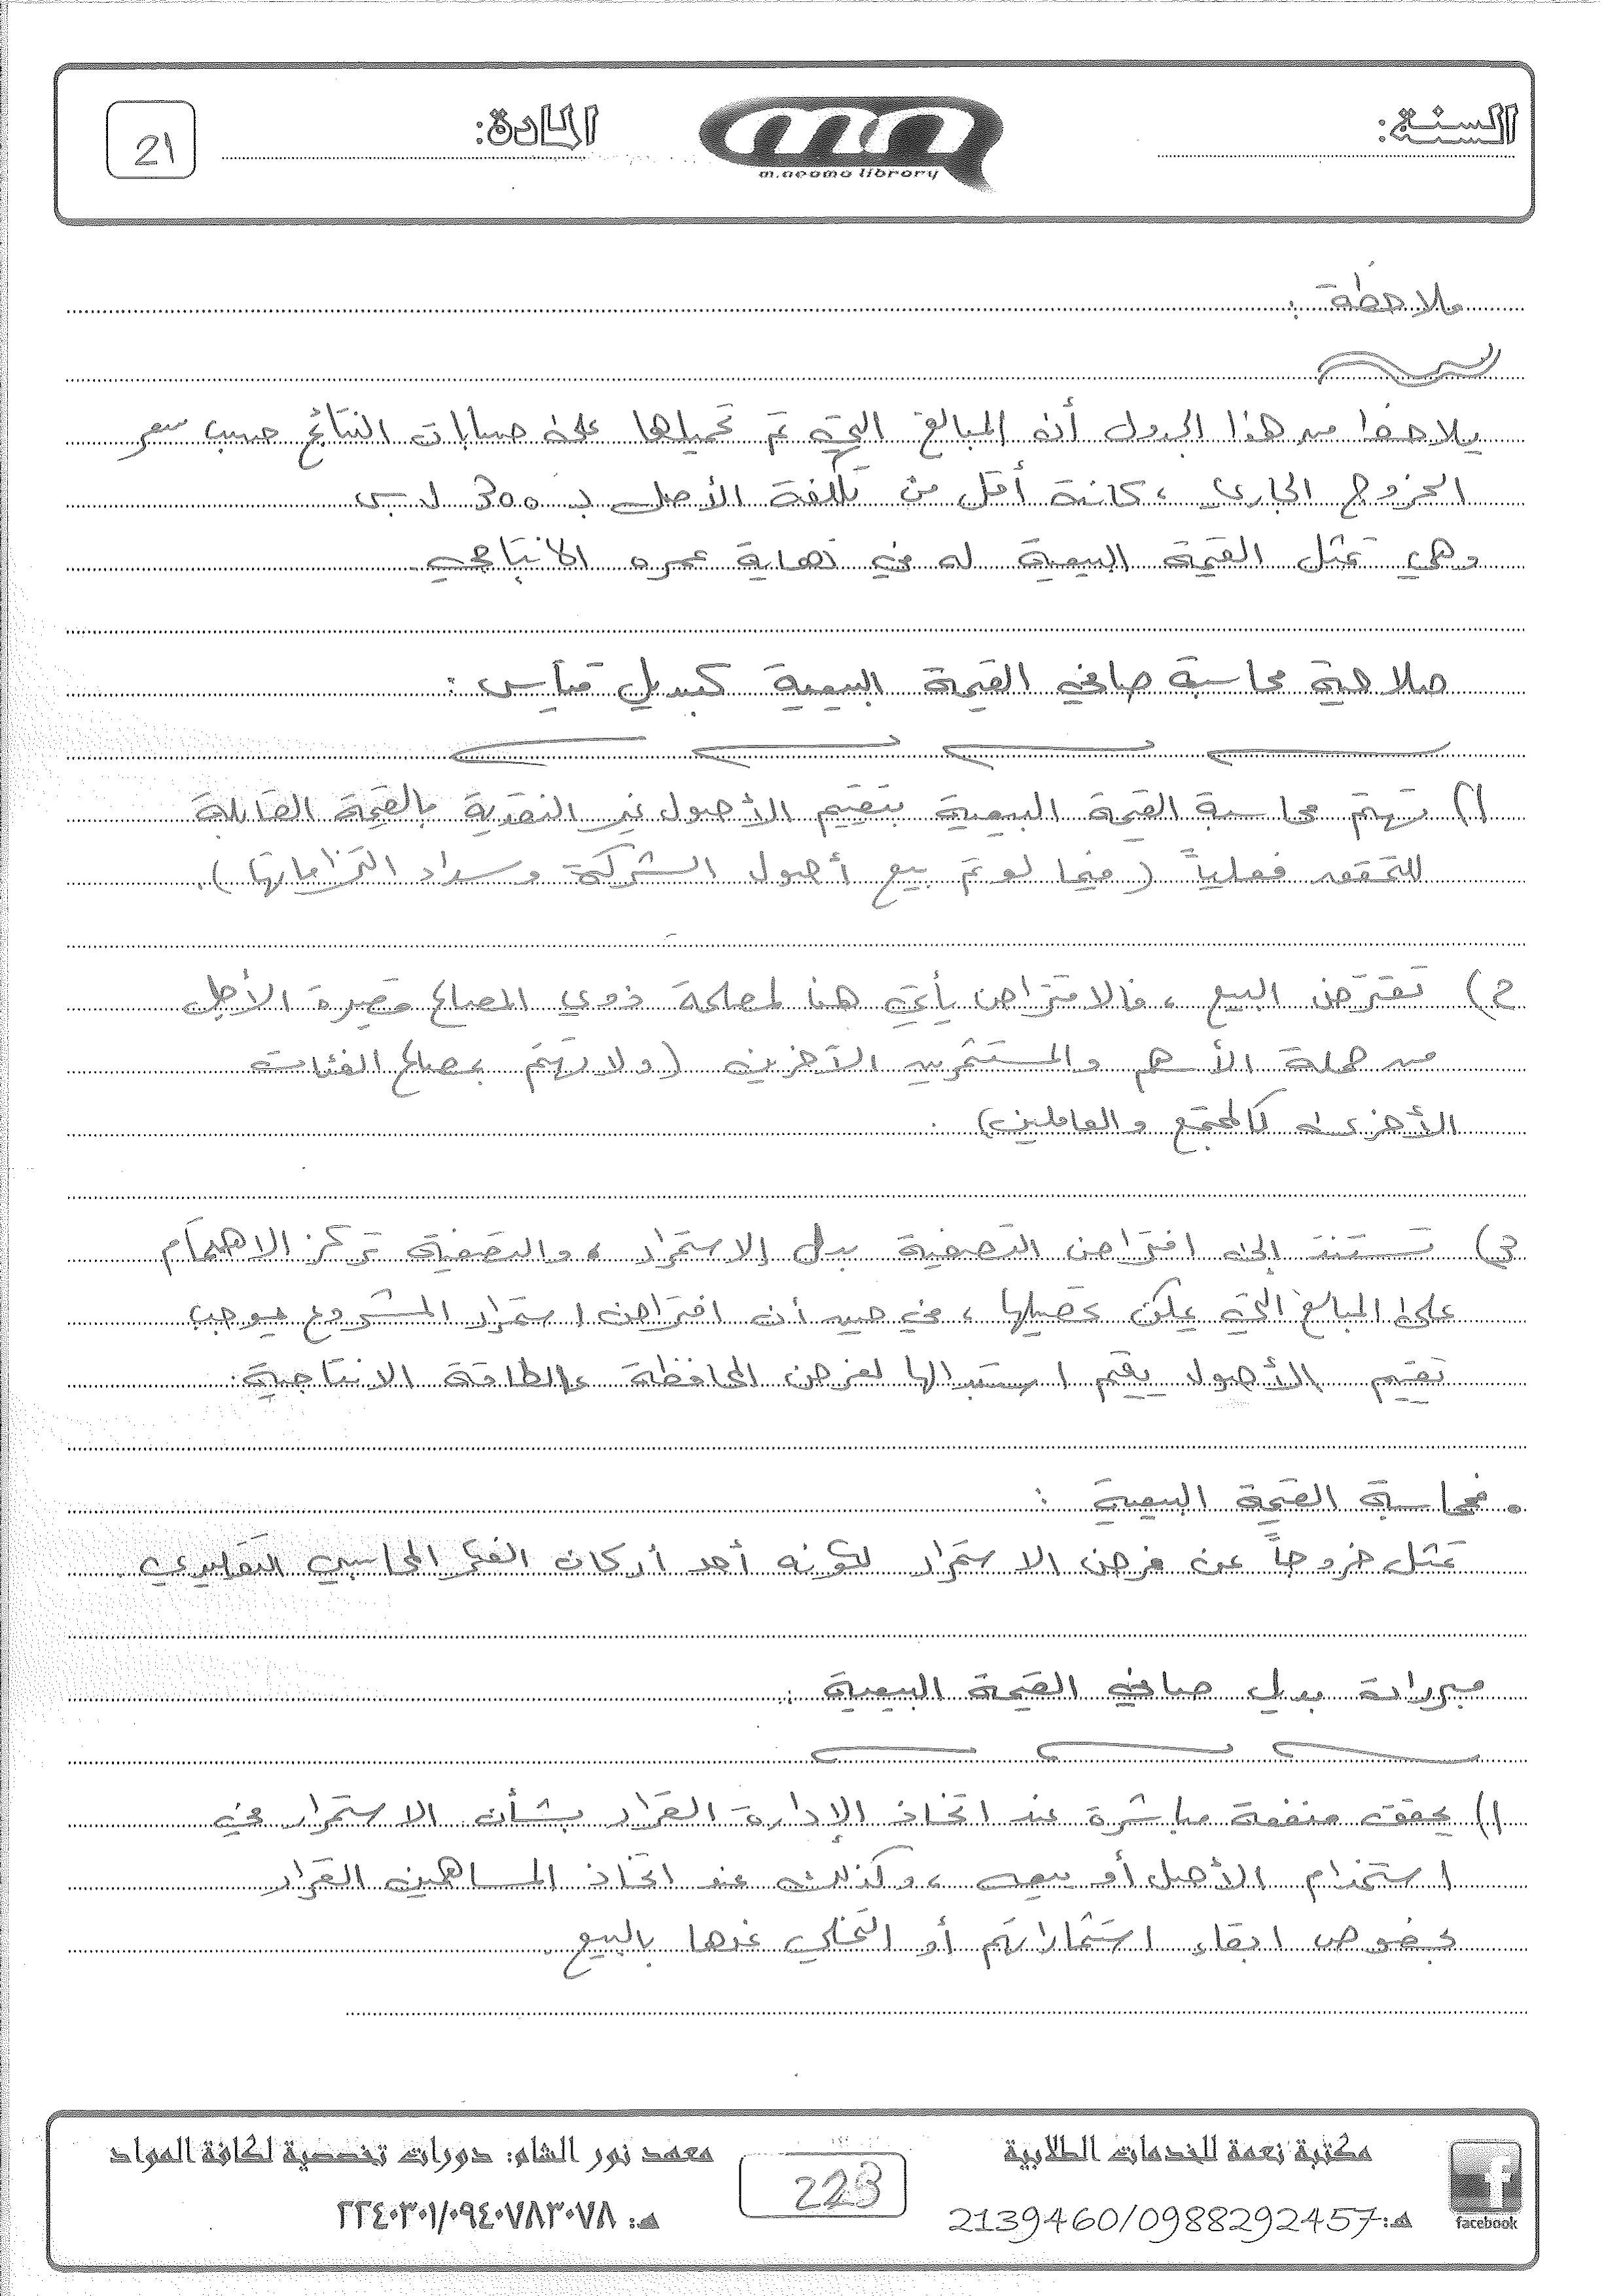 السنة:
المادة:
21
m.neama library
ملاحظة :
يلاحظ من هذا الجدول أن المبالغ التي تم تحميلها على حسابات النتائج حسب سعر
الخروج الجاري ، كانت أقل من تكلفة الأصل بـ 300 ل.س
وهي تمثل القيمة البيعية له في نهاية عمره الانتاجي .
صلاحية محاسبة صافي القيمة البيعية كبديل قياس :
1) تهتم محاسبة القيمة البيعية بتقييم الأصول غير النقدية بالقيمة القابلة
للتحقق فعلياً ( فيما لو تم بيع أصول الشركة وسداد التزاماتها ) .
2) تفترض البيع ، فالافتراض يأتي هنا لمصلحة ذوي المصالح قصيرة الأجل
من حملة الأسهم والمستثمرين الآخرين ( ولا تهتم بمصالح الفئات
الأخرى كالمجتمع والعاملين ) .
3) تستند إلى افتراض التصفية بدل الاستمرار ، والتصفية تركز الاهتمام
على المبالغ التي يمكن تحصيلها ، في حين أن افتراض استمرار المشروع يوجب
تقييم الأصول بقيم استبدالها لغرض المحافظة على الطاقة الانتاجية .
• فمحاسبة القيمة البيعية :
تمثل خروجاً عن فرض الاستمرار لكونه أحد أركان الفكر المحاسبي التقليدي .
مبررات بديل صافي القيمة البيعية :
1) يحقق منفعة مباشرة عند اتخاذ الإدارة القرار بشأن الاستمرار في
استخدام الأصل أو بيعه ، وكذلك عند اتخاذ المساهمين القرار
بخصوص ابقاء استثماراتهم أو التخلي عنها بالبيع .
مكتبة نعمة للخدمات الطلابية
هـ: 2139460/0988292457
facebook
223
معهد نور الشام: دورات تخصصية لكافة المواد
هـ: ٢٢٤٠٣٠١/٠٩٤٠٧٨٣٠٧٨